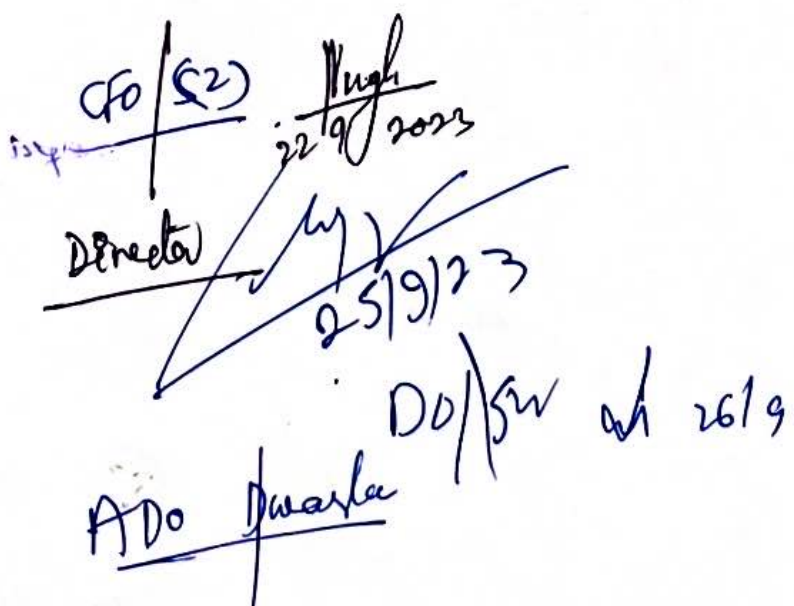 CFO (S2)
22 9 2023
Director
25/9/23
DO/SW 26/9
ADO Dwarka